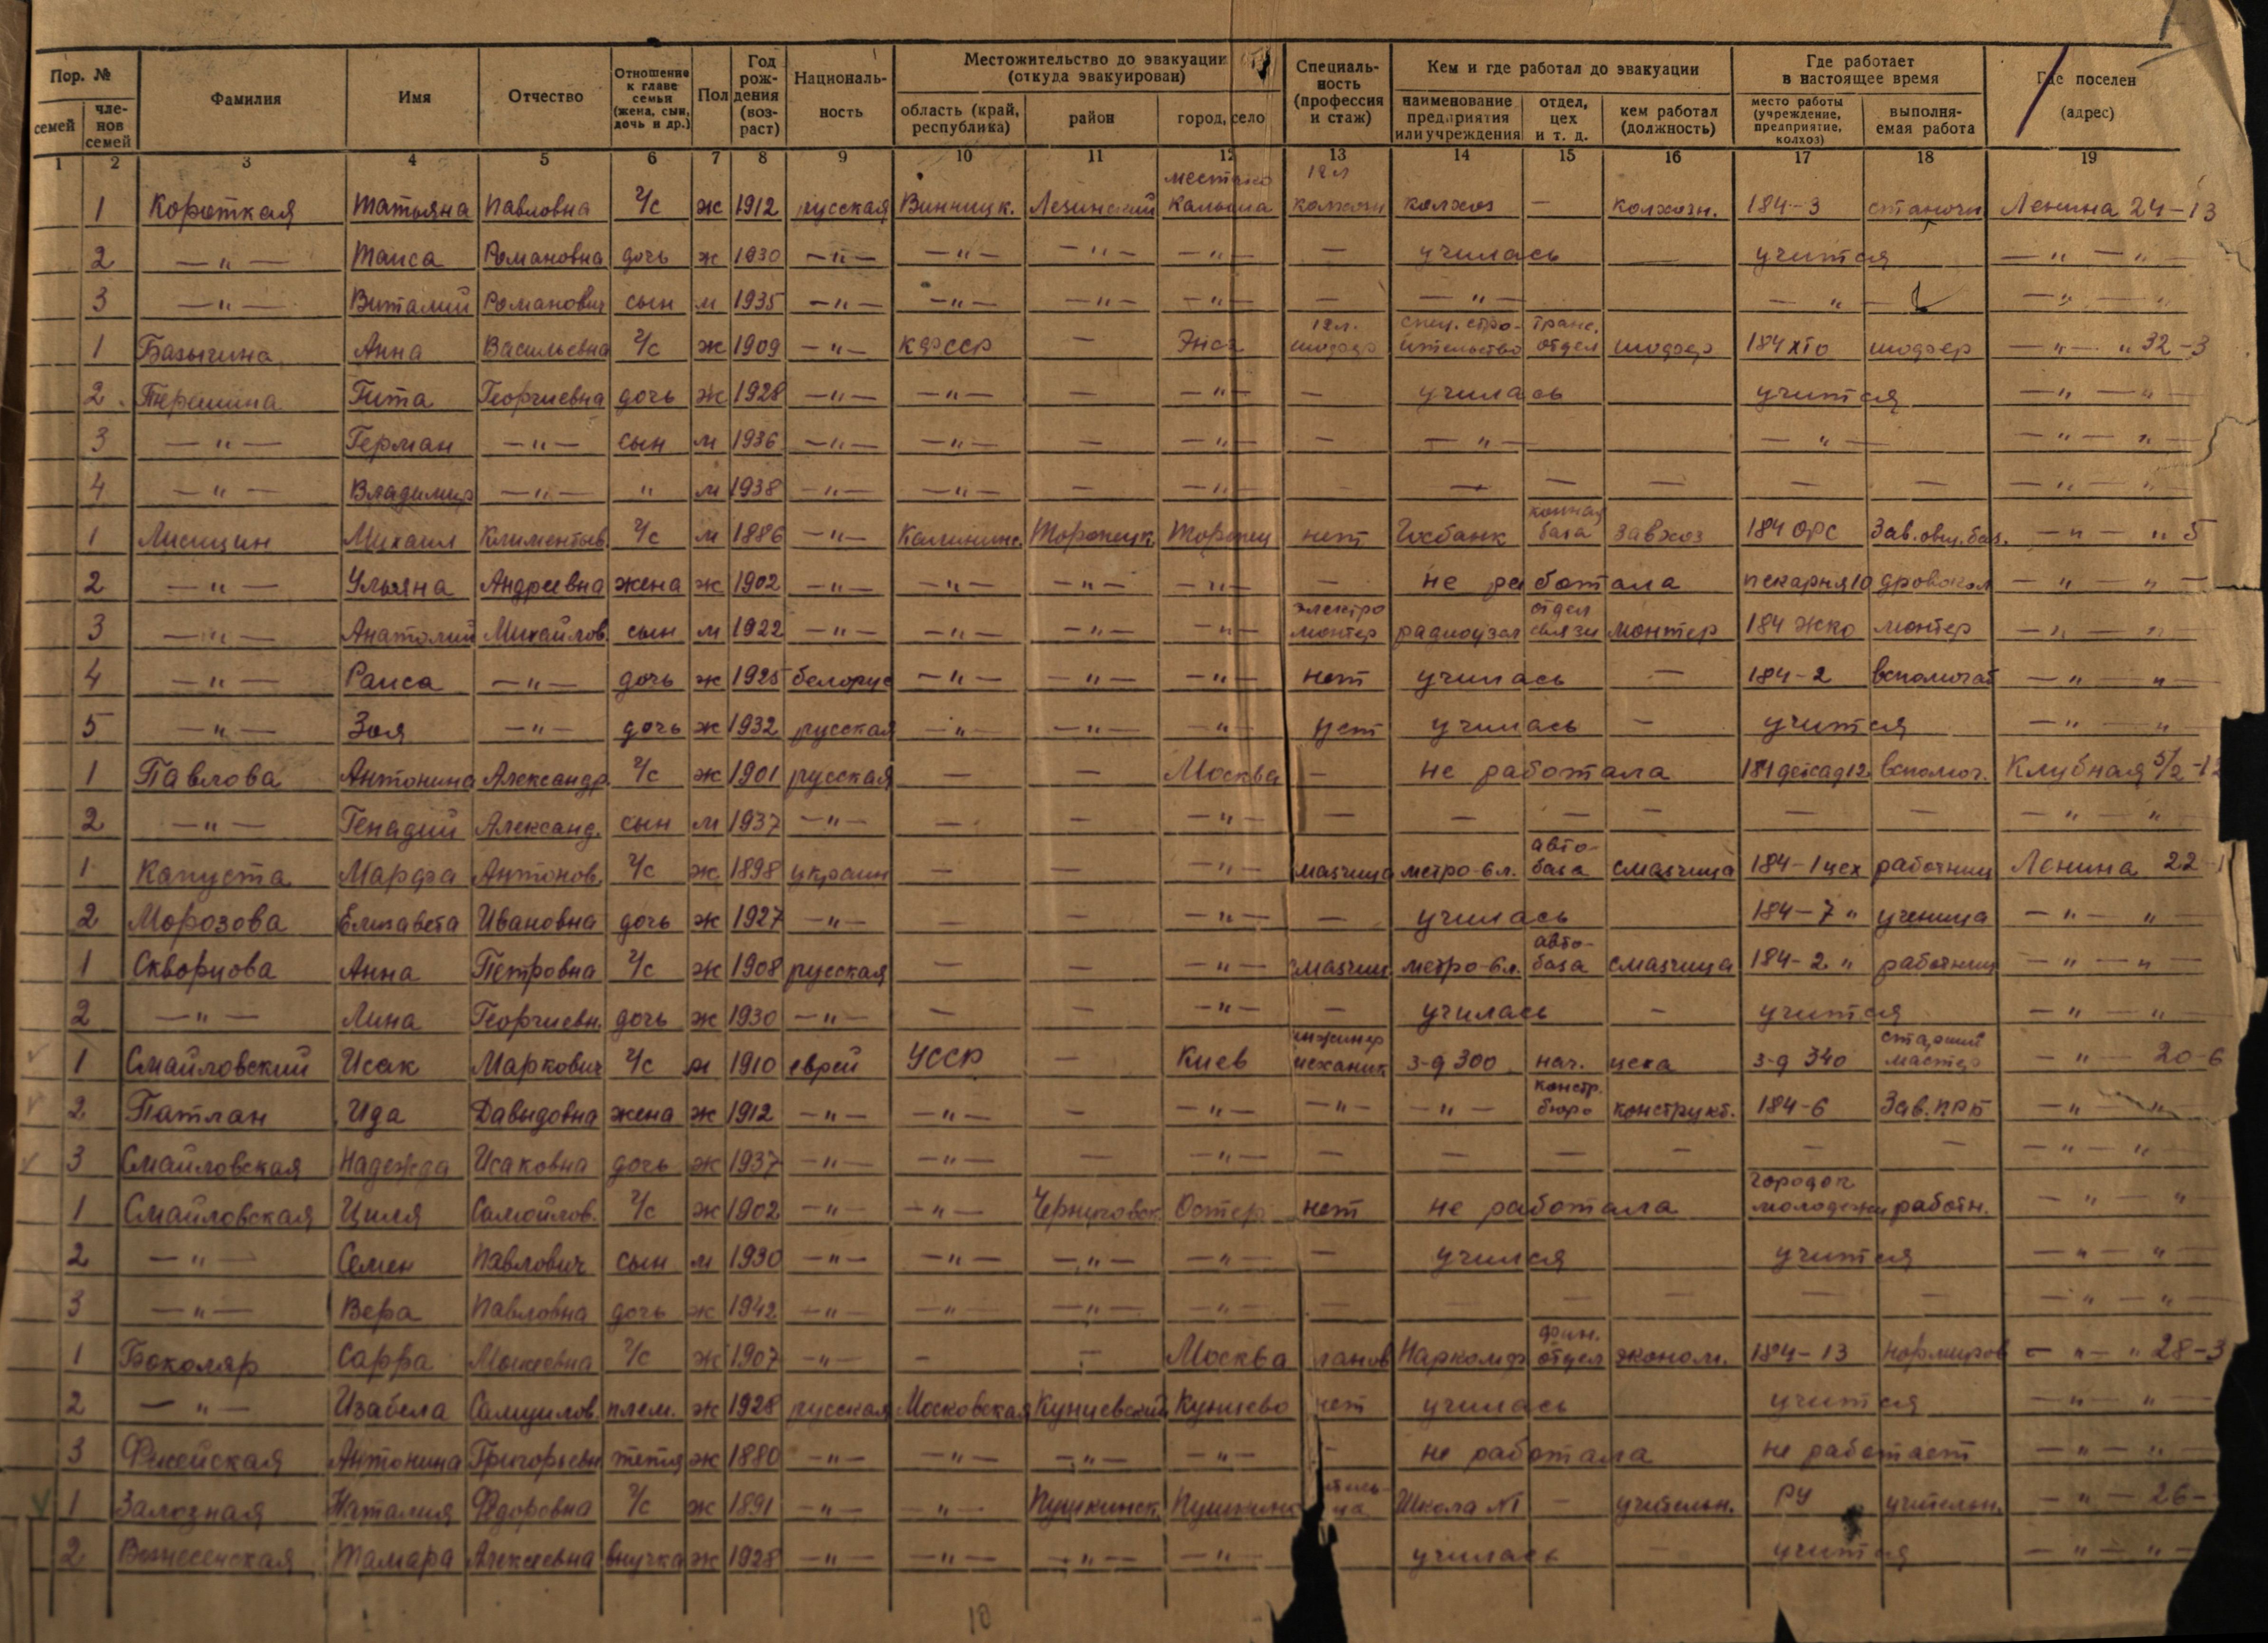 Пор. № Фамилия Имя Отчество Отношение к главе семьи (жена, сын, дочь и др.) Пол Год рождения (возраст) Националь-ность Местожительство до эвакуации (откуда эвакуирован) Специаль-ность (профессия и стаж) Кем и где работал до эвакуации Где работает в настоящее время Где поселен (адрес)
семей чле-нов семей область (край, республика) район город, село наименование предприятия или учреждения отдел, цех и т. д. кем работал (должность) место работы (учреждение, предприятие, колхоз) выполня-емая работа
1 2 3 4 5 6 7 8 9 10 11 12 13 14 15 16 17 18 19
1 Короткая Татьяна Павловна Г/с ж 1912 русская Винницк. местечко 12 л колхозн колхоз — колхозн. 184-3 станочн Ленина 24-13
2 —"— Таиса Романовна дочь ж 1930 —"— —"— —"— —"— — училась — учится —"— "—
3 —"— Виталий Романович сын м 1935 —"— —"— —"— —"— — —"— —"— —"— "
1 Анна Васильевна Г/с ж 1909 —"— КФССР — Энсо 12 л. шофер спец. стро-ительство транс. отдел шофер 184 ХТО шофер —"— " 32-3
2 Гита Георгиевна дочь ж 1928 —"— —"— — —"— — училась учится —"— "—
3 —"— Герман —"— сын м 1936 —"— —"— — —"— — —"— —"— —"— "—
4 —"— Владимир —"— " м 1938 —"— —"— — —"— — — — — — — —"— "—
1 Лисицин Михаил Климентьев. Г/с м 1886 —"— Калининс. Торопецк. Торопец нет Госбанк конная база завхоз 184 ОРС Зав. овощ. баз. —"— " 5
2 —"— Ульяна Андреевна жена ж 1902 —"— —"— —"— —"— — не работала пекарня 10 дровокол —"— "—
3 —"— Анатолий Михайлов. сын м 1922 —"— —"— —"— —"— электро монтер радиоузел отдел связи монтер 184 ЖКО монтер —"— "
4 —"— Раиса —"— дочь ж 1925 белорус —"— —"— —"— нет училась — 184-2 вспомогат —"— "
5 —"— Зоя —"— дочь ж 1932 русская —"— —"— —"— нет училась — учится —"— "
1 Павлова Антонина Александр. Г/с ж 1901 русская — — Москва — не работала детсад 12 вспомог. Клубная 5/2
2 —"— Генадий Александ. сын м 1937 —"— — — —"— — — — — — — —"— "
1 Капуста Марфа Антонов. Г/с ж 1898 украин — — —"— мазчица метро-6 л. авто-база смазчица 184-1 цех работниц Ленина 22
2 Морозова Елизавета Ивановна дочь ж 1927 —"— — — —"— — училась 184-7 " ученица —"— "
1 Скворцова Анна Петровна Г/с ж 1908 русская — — —"— смазчиц метро-6 л. авто-база смазчица 184-2 " работниц —"— "—
2 —"— Лина Георгиевн. дочь ж 1930 —"— — — —"— — училась — учится —"— "
1 Смайловский Исак Маркович Г/с м 1910 еврей УССР — Киев инженер механик з-д 300 нач. цеха з-д 340 старший мастер —"— 20-6
2 Патлан Ида Давыдовна жена ж 1912 —"— —"— — —"— —"— —"— констр. бюро конструкт. 184-6 Зав. ПРБ —"— "
3 Смайловская Надежда Исаковна дочь ж 1937 —"— —"— — —"— — — — — — — —"— "
1 Смайловская Циля Самойлов. Г/с ж 1902 —"— —"— Черниговск. Остер нет не работала городок молодежи работн. —"— "
2 —"— Семен Павлович сын м 1930 —"— —"— —"— —"— — учился учится —"— "
3 —"— Вера Павловна дочь ж 1942 —"— —"— —"— —"— — — — — — — —"— "
1 Бокколяр Сарра Моисеевна Г/с ж 1907 —"— — — Москва Наркомф фин. отдел эконом. 184-13 нормиров —"— " 28-3
2 —"— Изабела Самуилов. плем. ж 1928 русская Московская Кунцевский Кунцево нет училась учится —"— "
3 Антонина Григорьевн тетя ж 1880 —"— —"— —"— —"— — не работала не работает —"— "
1 Залозная Наталия Федоровна Г/с ж 1891 —"— —"— Пушкинск. Пушкино Школа №1 — учительн. РУ учительн. —"— 26-
2 Вознесенская Тамара Алексеевна внучка ж 1928 —"— —"— —"— —"— училась — учится —"— "—
10